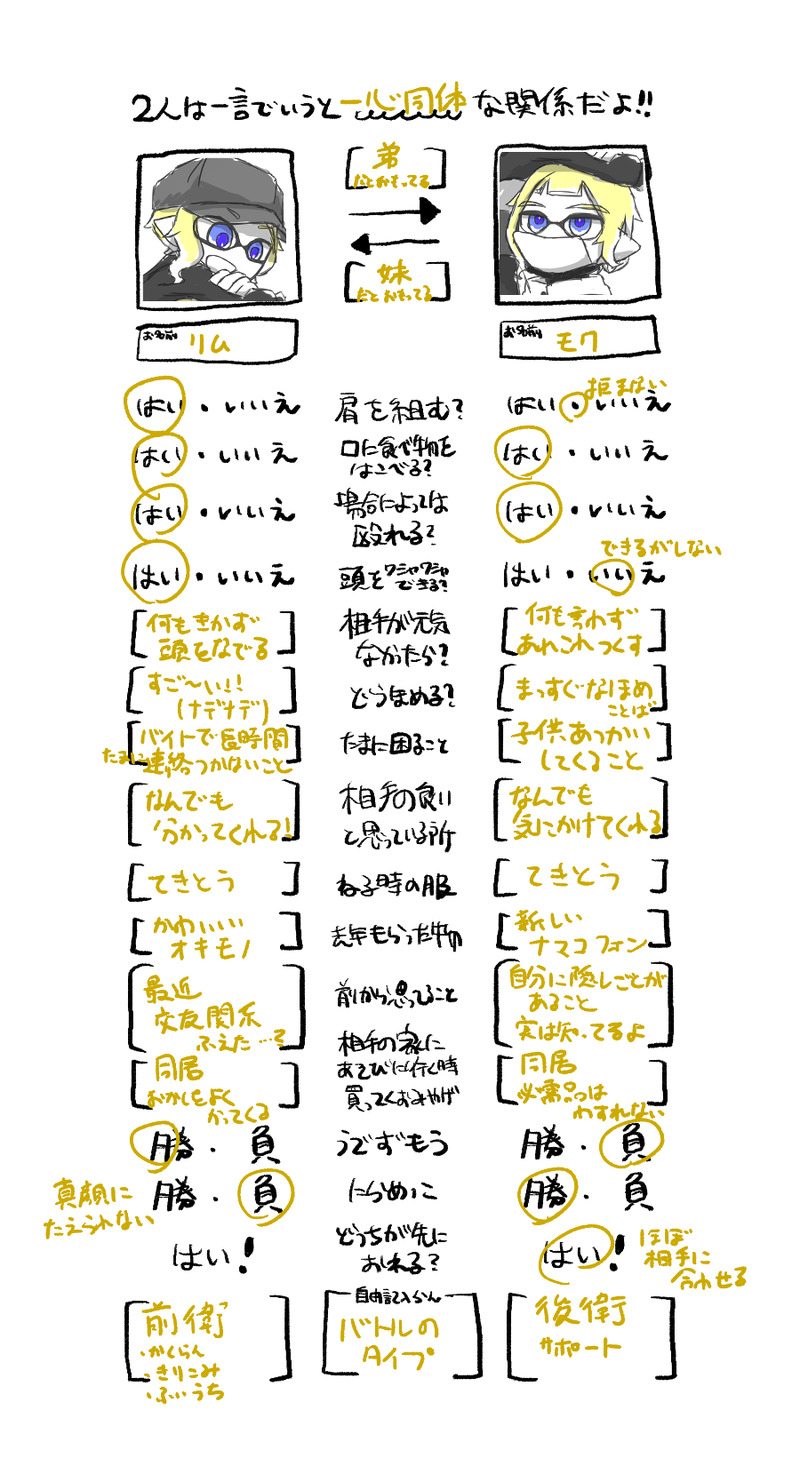 2人は一言でいうと一心同体な関係だよ!!
弟
だとおもってる
妹
だとおもってる
お名前 リム
お名前 モク
はい・いいえ 肩を組む? はい・いいえ 拒まない
はい・いいえ 口に食べ物を はい・いいえ
はこべる?
はい・いいえ 場合によっては はい・いいえ
殴れる?
できるがしない
はい・いいえ 頭をワシャワシャ はい・いいえ
できる?
何もきかず 相手が元気 何も言わず
頭をなでる なかったら? あれこれつくす
すご〜い!! どうほめる? まっすぐなほめ
(ナデナデ) ことば
バイトで長時間 たまに困ること 子供あつかい
たまに連絡つかないこと してくること
なんでも 相手の良い なんでも
分かってくれる! と思っている所 気にかけてくれる
てきとう ねる時の服 てきとう
かわいい 去年もらった物 新しい
オキモノ ナマコフォン
最近 前から思ってること 自分に隠しごとが
交友関係 あること
ふえた…? 実は知ってるよ
同居 相手の家に 同居
おかしをよく あそびに行く時 必需品は
かってくる 買ってくおみやげ わすれない
勝・負 うでずもう 勝・負
勝・負 にらめっこ 勝・負
真顔に
たえられない
はい! どっちが先に はい!
おれる?
ほぼ
相手に
合わせる
自由記入らん
前衛 バトルの 後衛
・かくらん タイプ サポート
・きりこみ
・ふいうち